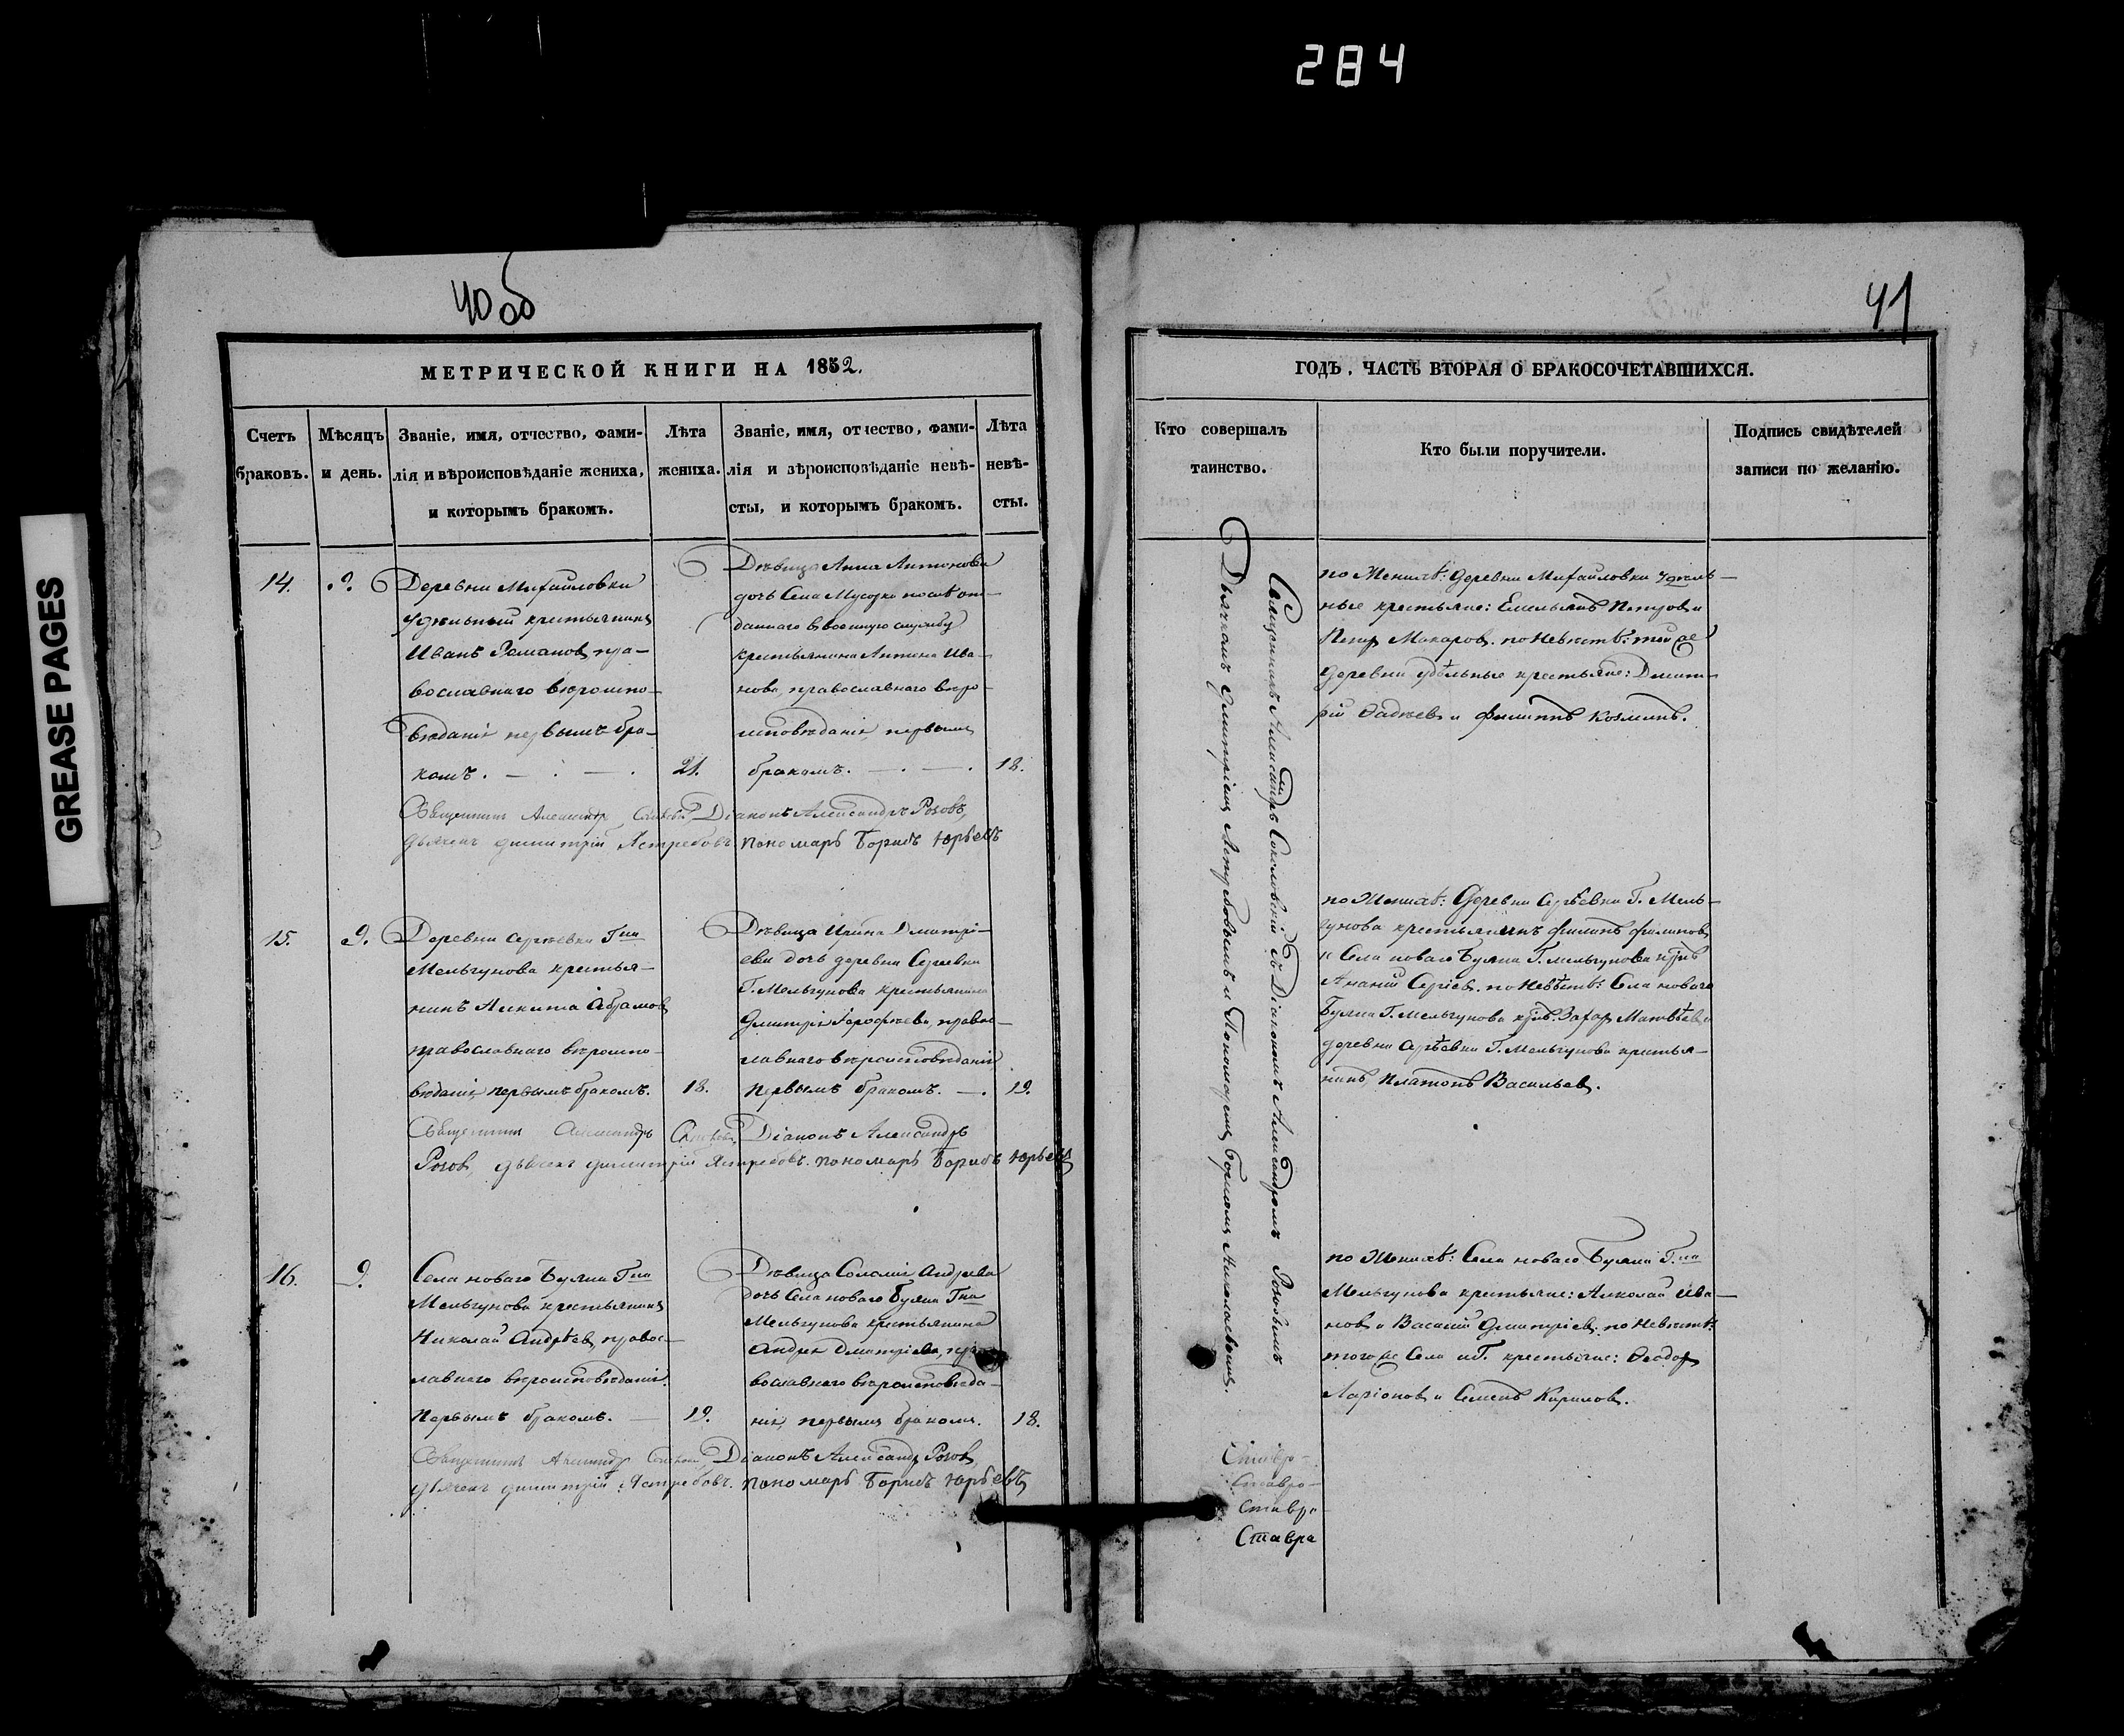 284
GREASE PAGES
40 об
МЕТРИЧЕСКОЙ КНИГИ НА 1852.
Счетъ браковъ.
Мѣсяцъ и день.
Званіе, имя, отчество, фами-
лія и вѣроисповѣданіе жениха,
и которымъ бракомъ.
Лѣта
жениха.
Званіе, имя, отчество, фами-
лія и вѣроисповѣданіе невѣ-
сты, и которымъ бракомъ.
Лѣта
невѣ-
сты.
14.
9.
Деревни Михайловки
удѣльный крестьянинъ
Иванъ Романовъ, пра-
вославнаго вѣроиспо-
вѣданія первымъ бра-
комъ.
21.
Дѣвица Анна Антонова
дочь Села после от-
даннаго въ военную службу
крестьянина Антона Ива-
нова, православнаго вѣро-
исповѣданія, первымъ
бракомъ.
18.
Священникъ Александръ Діаконъ Александръ Розовъ,
дьячекъ Димитрій Ястребовъ. пономарь Борисъ Юрьевъ
15.
9.
Деревни Сергѣевки Гна
Мельгунова крестья-
нинъ Никита Абрамовъ
православнаго вѣроиспо-
вѣданія, первымъ бракомъ.
18.
Дѣвица Ирина Дмитрі-
ева дочь деревни Сергѣевки
Г. Мельгунова крестьянина
Дмитрія Ѳрофѣева, правос-
лавнаго вѣроисповѣданія
первымъ бракомъ.
19.
Священникъ Александръ Діаконъ Александръ
Розовъ, дьячекъ Димитрій Ястребовъ. пономарь Борисъ Юрьевъ
16.
9.
Села новаго Буяна Гна
Мельгунова крестьянинъ
Николай Андрѣевъ, правос-
лавнаго вѣроисповѣданія.
Первымъ бракомъ.
19.
Дѣвица Соломія Андрѣева
дочь Села новаго Буяна Гна
Мельгунова крестьянина
Андрея Дмитріева, пра-
вославнаго вѣроисповѣда-
нія, первымъ бракомъ.
18.
Священникъ Александръ Діаконъ Александръ Розовъ,
дьячекъ Димитрій Ястребовъ. пономарь Борисъ Юрьевъ
41
ГОДЪ, ЧАСТЬ ВТОРАЯ О БРАКОСОЧЕТАВШИХСЯ.
Кто совершалъ
таинство.
Кто были поручители.
Подпись свидѣтелей
записи по желанію.
Священникъ Александръ Соколовскій съ Діакономъ Александромъ Розовымъ
Дьячкомъ Димитріемъ Ястребовымъ и Пономаремъ Борисомъ
по Женихѣ: деревни Михайловки удѣль-
ные крестьяне: Емельянъ Петровъ и
Петръ Макаровъ. по Невѣстѣ: той же
деревни удѣльные крестьяне: Дмит-
рій Ѳадѣевъ и Филиппъ Козминъ.
по Женихѣ: Деревни Сергѣевки Г. Мель-
гунова крестьянинъ Филипъ Филиповъ
и Села новаго Буяна Г. Мельгунова
Ананій Сергіевъ. по Невѣстѣ: Села новаго
Буяна Г. Мельгунова Захаръ Матвѣевъ и
деревни Сергѣевки Г. Мельгунова крестья-
нинъ, Платонъ Васильевъ.
по Женихѣ: Села новаго Буяна Гна
Мельгунова крестьяне: Николай Ива-
новъ и Василій Дмитріевъ. по Невѣстѣ:
того же Села и Г. крестьяне: Ѳеодоръ
Ларіоновъ и Семенъ Кириловъ.
Ставро-
Ставро-
Ставро-
Ставра